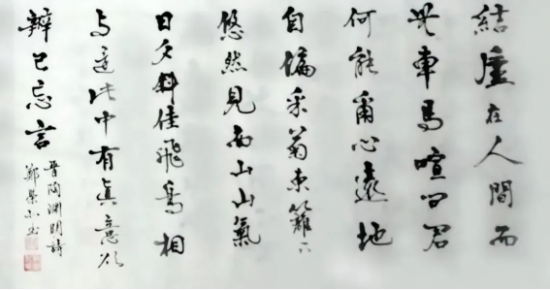 結廬在人間而
無車馬喧問君
何能爾心遠地
自偏采菊東籬下
悠然見南山山氣
日夕佳飛鳥相
與還此中有真意欲
辨已忘言
晉陶淵明詩